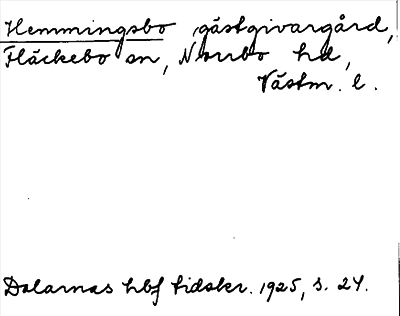 Hemmingsbo, gästgivargård,
Fläckebo sn, Norrbo hd,
Västm. l.
Dalarnas hbf tidskr. 1925, s. 24.